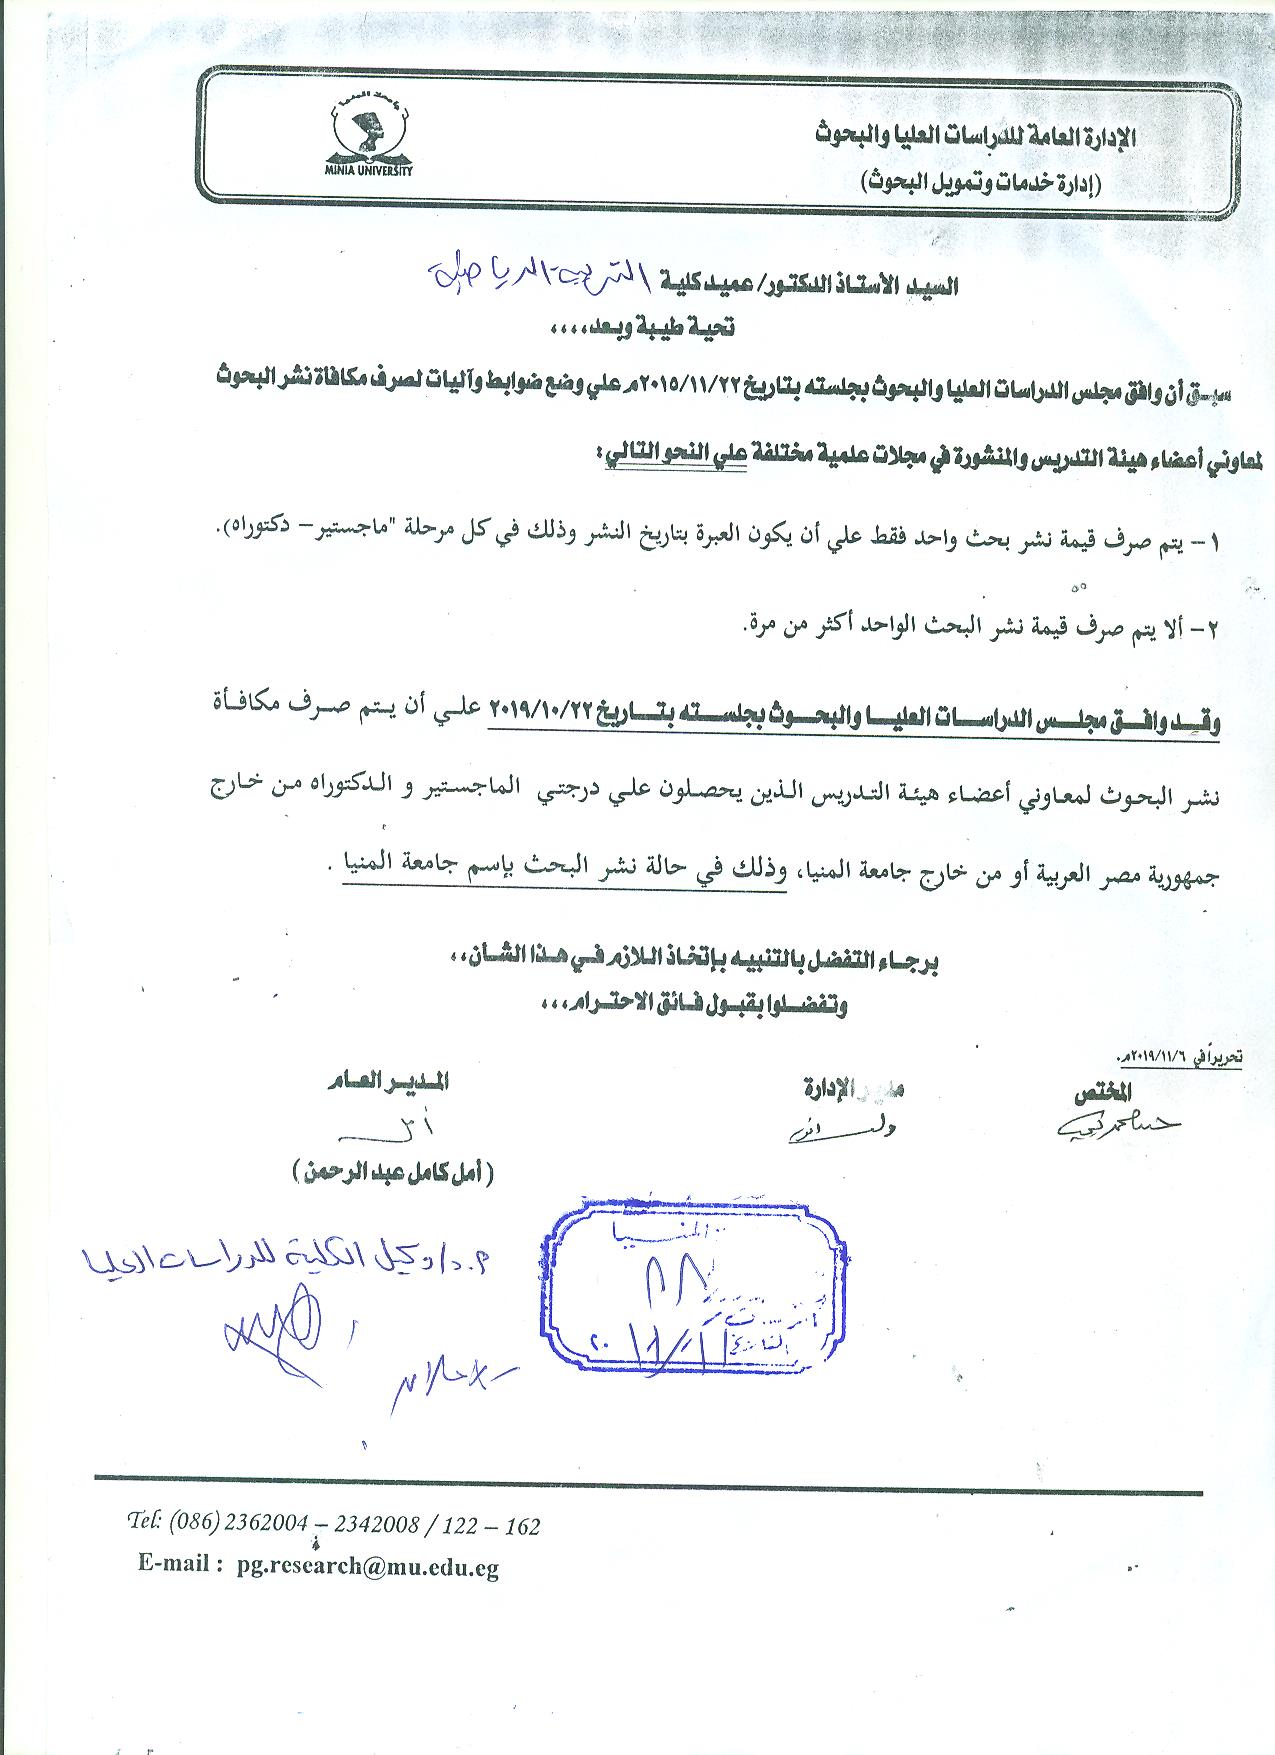 جامعة المنيا
MINIA UNIVERSITY
الإدارة العامة للدراسات العليا والبحوث
(إدارة خدمات وتمويل البحوث)
السيد الأستاذ الدكتور/ عميد كلية التربية الرياضية
تحية طيبة وبعد،،،،
سبق أن وافق مجلس الدراسات العليا والبحوث بجلسته بتاريخ ٢٠١٥/١١/٢٢م علي وضع ضوابط وآليات لصرف مكافاة نشر البحوث
لمعاوني أعضاء هيئة التدريس والمنشورة في مجلات علمية مختلفة علي النحو التالي:
١- يتم صرف قيمة نشر بحث واحد فقط علي أن يكون العبرة بتاريخ النشر وذلك في كل مرحلة "ماجستير- دكتوراه).
٢- ألا يتم صرف قيمة نشر البحث الواحد أكثر من مرة.
وقد وافق مجلس الدراسات العليا والبحوث بجلسته بتاريخ ٢٠١٩/١٠/٢٢ علي أن يتم صرف مكافأة
نشر البحوث لمعاوني أعضاء هيئة التدريس الذين يحصلون علي درجتي الماجستير و الدكتوراه من خارج
جمهورية مصر العربية أو من خارج جامعة المنيا، وذلك في حالة نشر البحث بإسم جامعة المنيا .
برجاء التفضل بالتنبيه بإتخاذ اللازم في هذا الشأن،،
وتفضلوا بقبول فائق الاحترام،،،
تحريراً في ٢٠١٩/١١/٦م.
المختص
مدير الإدارة
المدير العام
أمل
(أمل كامل عبد الرحمن)
المنيا
التاريخ
٢٠
أ.د/ وكيل الكلية للدراسات العليا
Tel: (086) 2362004 – 2342008 / 122 – 162
E-mail : pg.research@mu.edu.eg